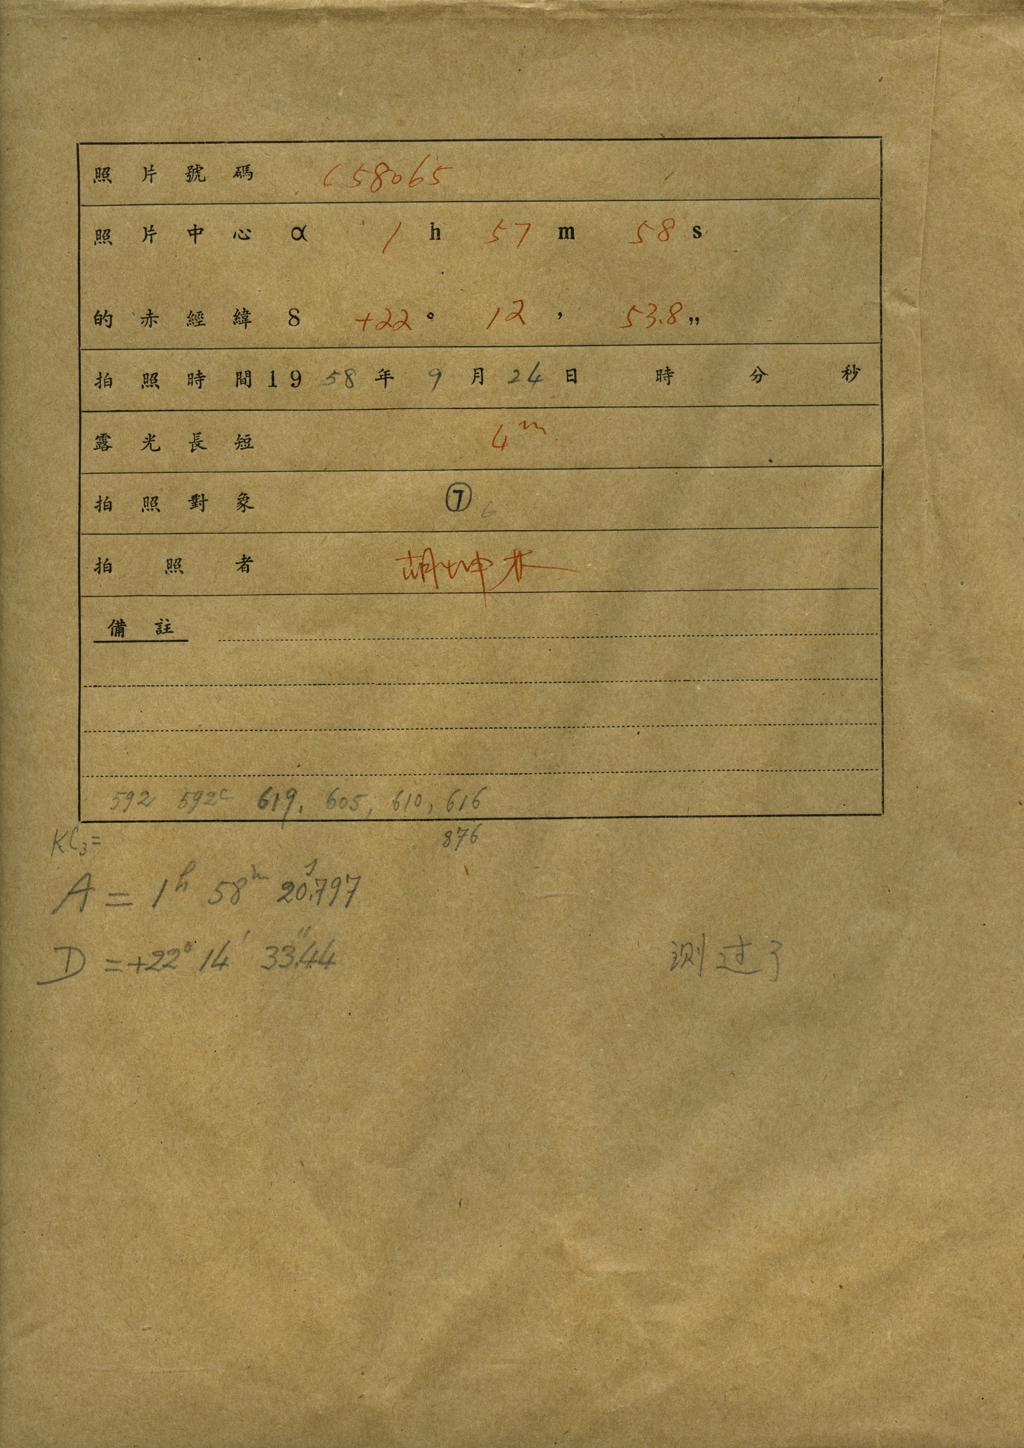 照片號碼 C58065
照片中心 α 1 h 57 m 58 s
的赤經緯 δ +22 ° 12 ' 53.8 "
拍照時間 19 58 年 9 月 24 日 時 分 秒
露光長短 4m
拍照對象 ⑦
拍照者 胡坤林
備註
592 592c 619, 605, 610, 616
876
KC3=
A = 1h 58m 20s.797
D = +22° 14' 33".44
测过了